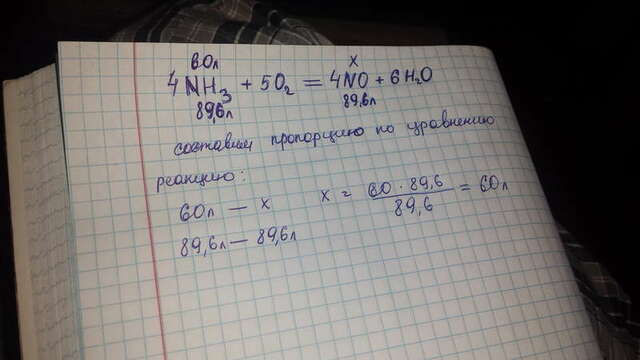 60л x
4NH₃ + 5O₂ = 4NO + 6H₂O
89,6л 89,6л
составим пропорцию по уравнению
реакцию:
60л — x x = 60 · 89,6 / 89,6 = 60л
89,6л — 89,6л